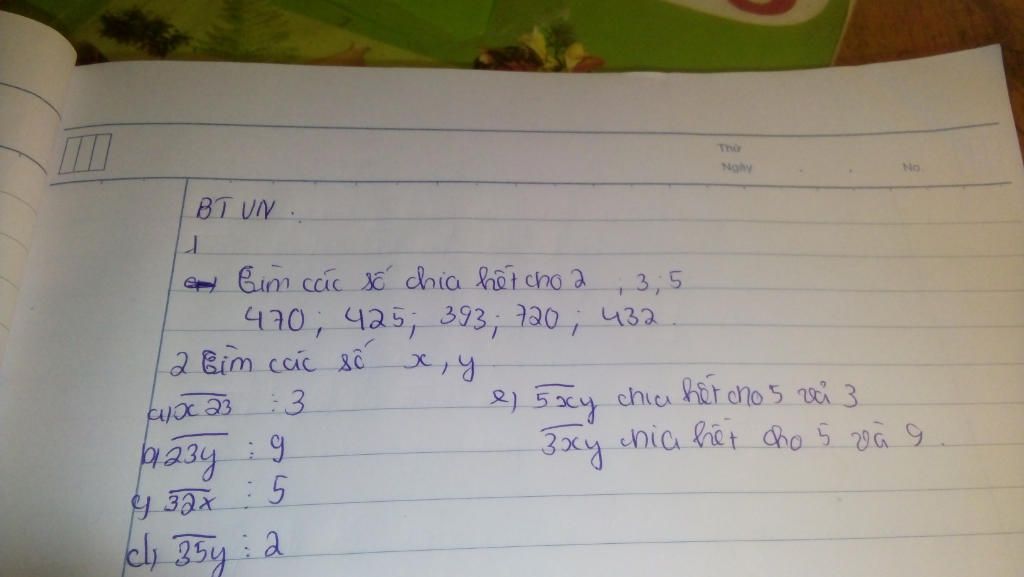 Thứ
Ngày . . No.
BTVN.
1
Tìm các số chia hết cho 2 ; 3 ; 5
470 ; 425 ; 393 ; 720 ; 432.
2 Tìm các số x, y
a) x23 ⋮ 3
b) 23y ⋮ 9
c) 32x ⋮ 5
d) 35y ⋮ 2
e) 5xy chia hết cho 5 và 3
3xy chia hết cho 5 và 9.